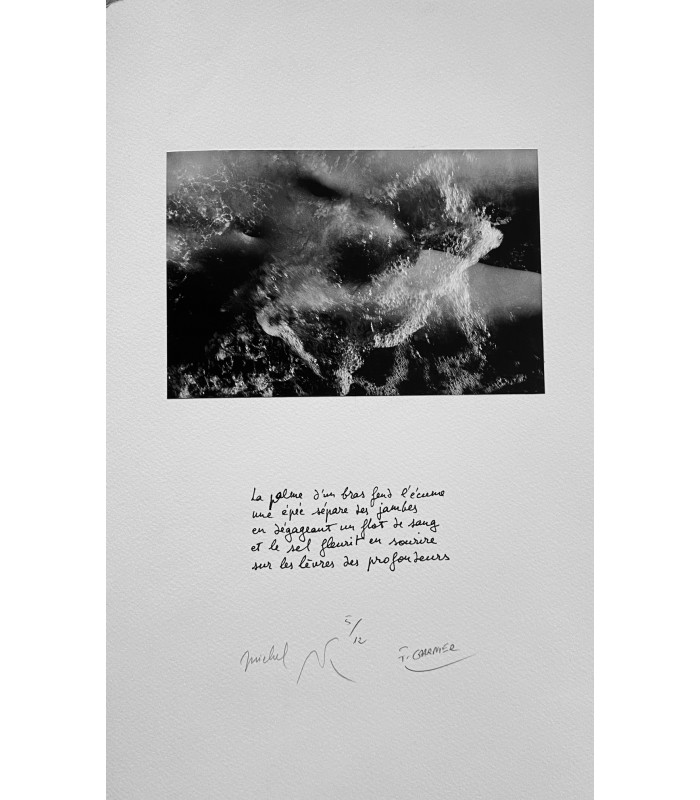 La palme d'un bras fend l'écume
une épée sépare des jambes
en dégageant un flot de sang
et le sel fleurit en sourire
sur les lèvres des profondeurs
5/12
michel
T. CARNIER